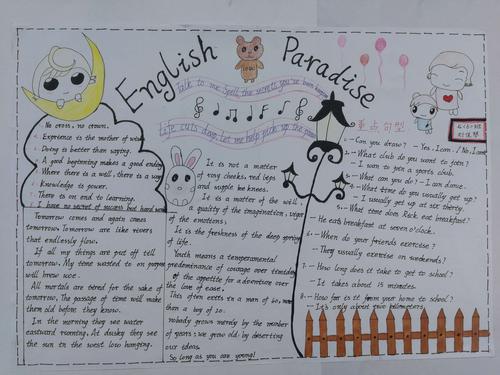 English Paradise
Talk to me Spell the secrets you've been
Life cuts deep. Let me help pick up the
No cross, no crown.
Experience is the mother of wisdom
Doing is better than saying.
A good beginning makes a good ending
Where there is a will, there is a way
Knowledge is power.
There is on end to learning.
I have no secret of success but hard work
Tomorrow comes and again comes
tomorrow. Tomorrow are like rivers
that endlessly flow.
If all my things are put off till
tomorrow, My time wanted to on
will brew woe.
All mortals are tired for the sake of
tomorrow, The passage of time will make
them old before they know.
In the morning they see water
eastward running. At dusky they see
the sun in the west low hanging.
It is not a matter
of rosy cheeks, red legs
and supple knees.
It is a matter of the will,
a quality of the imagination, vigor
of the emotions.
It is the freshness of the deep spring
of life.
Youth means a temperamental
predominance of courage over timidity
of the appetite for adventure over
the love of ease.
This often exists in a man of 60, more
than a boy of 20.
nobody grows merely by the number
of years: we grow old by deserting
our ideas.
So long as you are young!
重点句型
1.-Can you draw? - Yes, I can. / No, I can't
2.-What club do you want to join?
-I want to join a sports club.
3.-What can you do? - I can dance.
4.-What time do you usually get up?
-I usually get up at six thirty.
5.-What time does Rick eat breakfast?
-He eats breakfast at seven o'clock.
6.-When do your friends exercise?
-They usually exercise on weekends!
7.-How long does it take to get to school?
-It takes about 15 minutes.
8.-How far is it from your home to school?
-It's only about two kilometers.